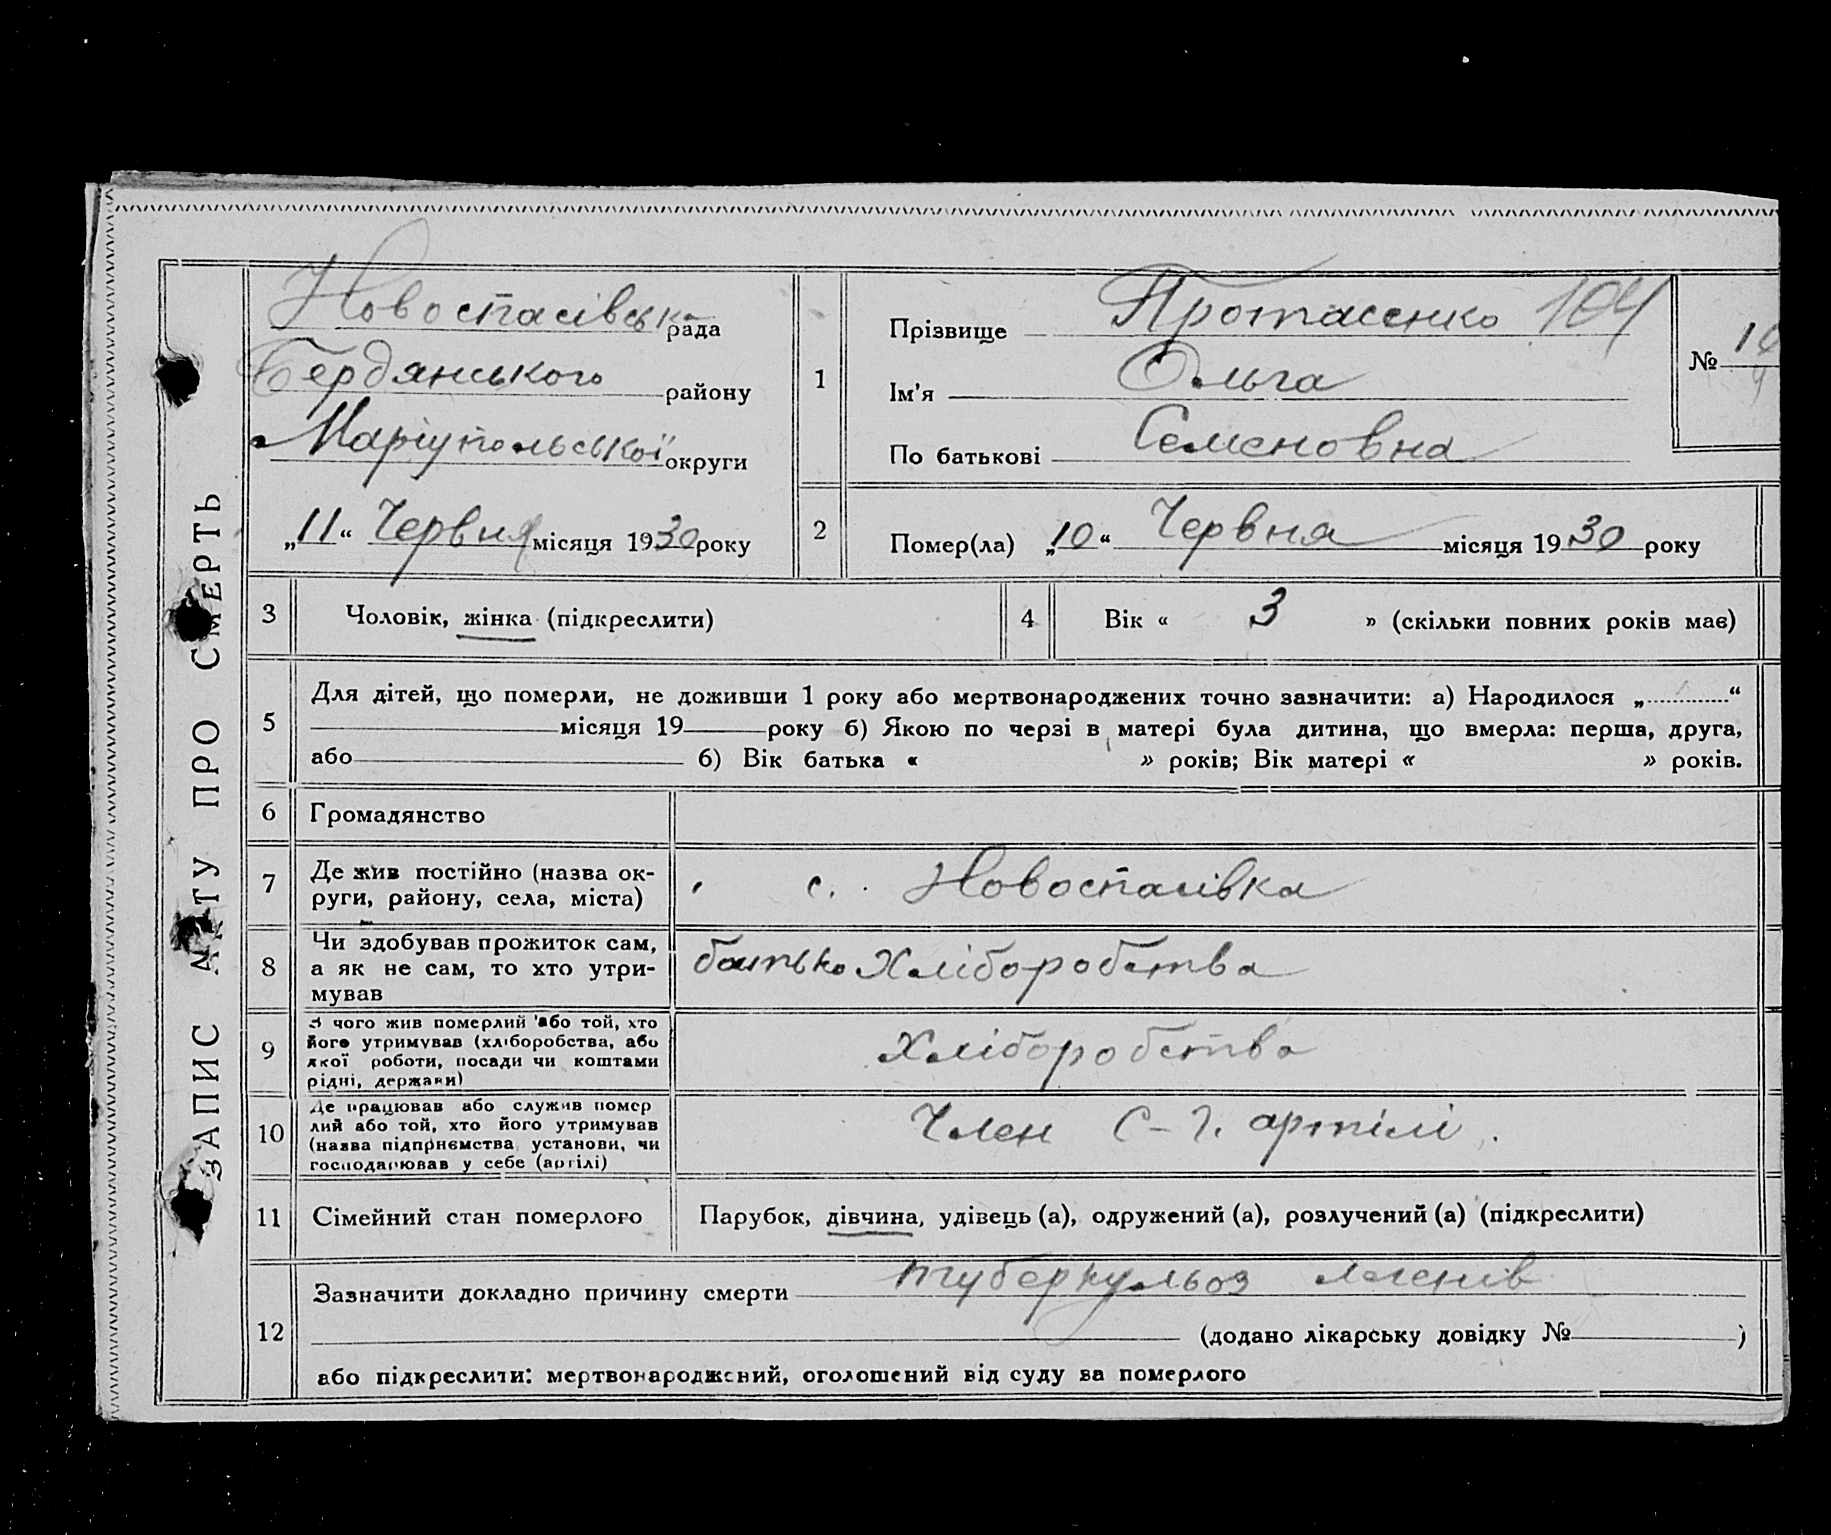 ЗАПИС АКТУ ПРО СМЕРТЬ
Новоспасівська рада
Бердянського району
Маріупольської округи
„11“ Червня місяця 1930 року
1
Прізвище Протасенко 104
Ім'я Ольга
По батькові Семеновна
№
2
Помер(ла) „10“ Червня місяця 1930 року
3 Чоловік, жінка (підкреслити)
4 Вік « 3 » (скільки повних років має)
5
Для дітей, що померли, не доживши 1 року або мертвонароджених точно зазначити: а) Народилося „ “
місяця 19 року б) Якою по черзі в матері була дитина, що вмерла: перша, друга,
або б) Вік батька « » років; Вік матері « » років.
6 Громадянство
7 Де жив постійно (назва ок-
руги, району, села, міста)
с. Новоспасівка
8 Чи здобував прожиток сам,
а як не сам, то хто утри-
мував
батько Хліборобства
9 З чого жив померлий або той, хто
його утримував (хліборобства, або
якої роботи, посади чи коштами
рідні, держави)
Хліборобства
10 Де працював або служив помер
лий або той, хто його утримував
(назва підприємства установи, чи
господарював у себе (артілі)
Член С-г. артілі.
11 Сімейний стан померлого
Парубок, дівчина, удівець (а), одружений (а), розлучений (а) (підкреслити)
12
Зазначити докладно причину смерти туберкульоз легенів
(додано лікарську довідку № )
або підкреслити: мертвонароджений, оголошений від суду за померлого